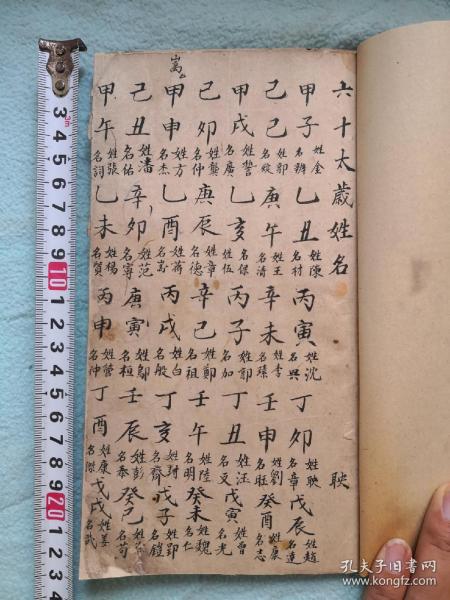 六十太歲姓名
甲子 姓金 名辦 乙丑 姓陳 名材 丙寅 姓沈 名興 丁卯 名章 戊辰 姓趙 名達
己巳 姓郭 庚午 姓王 名清 辛未 姓李 壬申 姓劉 名旺 癸酉 姓康 名志
甲戌 姓誓 名廣 乙亥 姓伍 名保 丙子 姓郭 名加 丁丑 姓汪 名文 戊寅 姓曾 名光
己卯 姓龔 名仲 庚辰 姓章 名德 辛巳 姓鄭 名祖 壬午 姓陸 名明 癸未 姓魏 名仁
甲申 姓方 名杰 乙酉 姓蔣 丙戌 姓白 名般 丁亥 姓封 名齊 戊子 姓郢 名鏜
己丑 姓潘 名佑 辛卯 姓范 名寧 庚寅 姓鄔 名桓 壬辰 姓彭 名泰 癸巳 名荀
甲午 姓張 名詞 乙未 姓楊 名賢 丙申 姓管 名仲 丁酉 姓康 名傑 戊戌 姓姜 名武
嵩
3 4 5 6 7 8 9 10 1 2 3 4 5 6 7 8 9 20 1 2
孔夫子旧书网